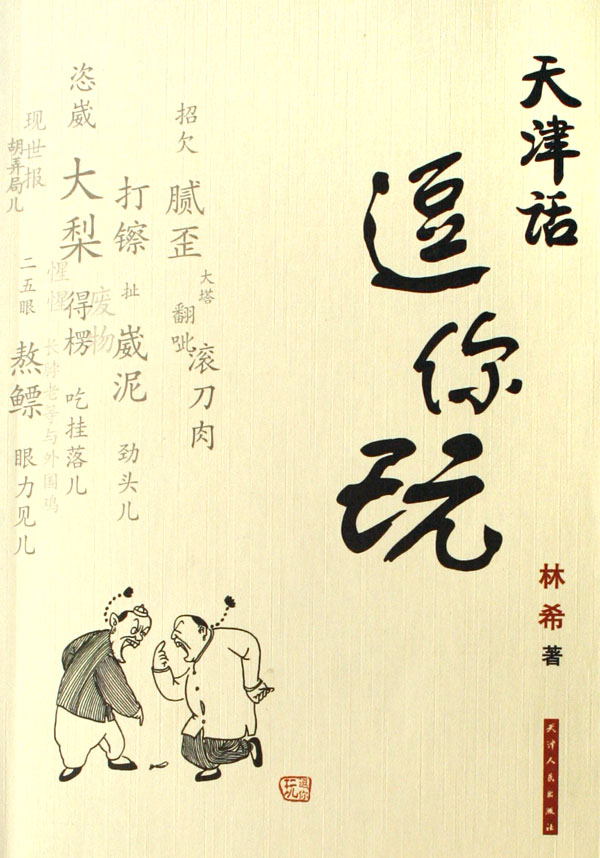 天津话
逗你玩
林希 著
天津人民出版社
招欠
腻歪
大塔
翻呲
滚刀肉
打镲
扯
崴泥
劲头儿
废物
恣崴
大梨
得楞
吃挂落儿
惺惺
长脖老等与外国鸡
现世报
胡弄局儿
二五眼
熬鳔
眼力见儿
逗你玩